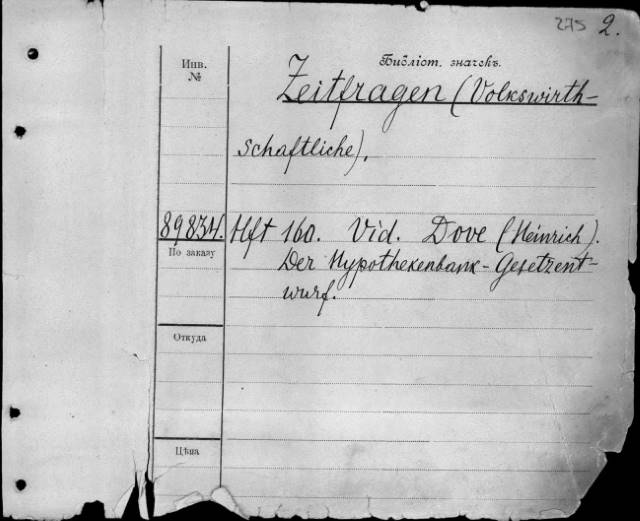 275 2.
Инв.
№
Библіот. значекъ.
Zeitfragen (Volkswirth-
schaftliche).
89834. Hft 160. Vid. Dove (Heinrich).
По заказу
Der Hypothekenbank-Gesetzent-
wurf.
Откуда
Цѣна